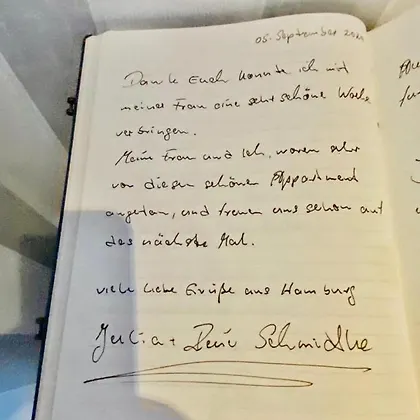 05. September
Dank Euch konnte ich mit
meiner Frau eine sehr schöne Woche
verbringen.
Meine Frau und ich, waren sehr
von diesem schönen Appartment
angetan, und freuen uns schon auf
das nächste Mal.
viele liebe Grüße aus Hamburg
Julia + René Schmidtke